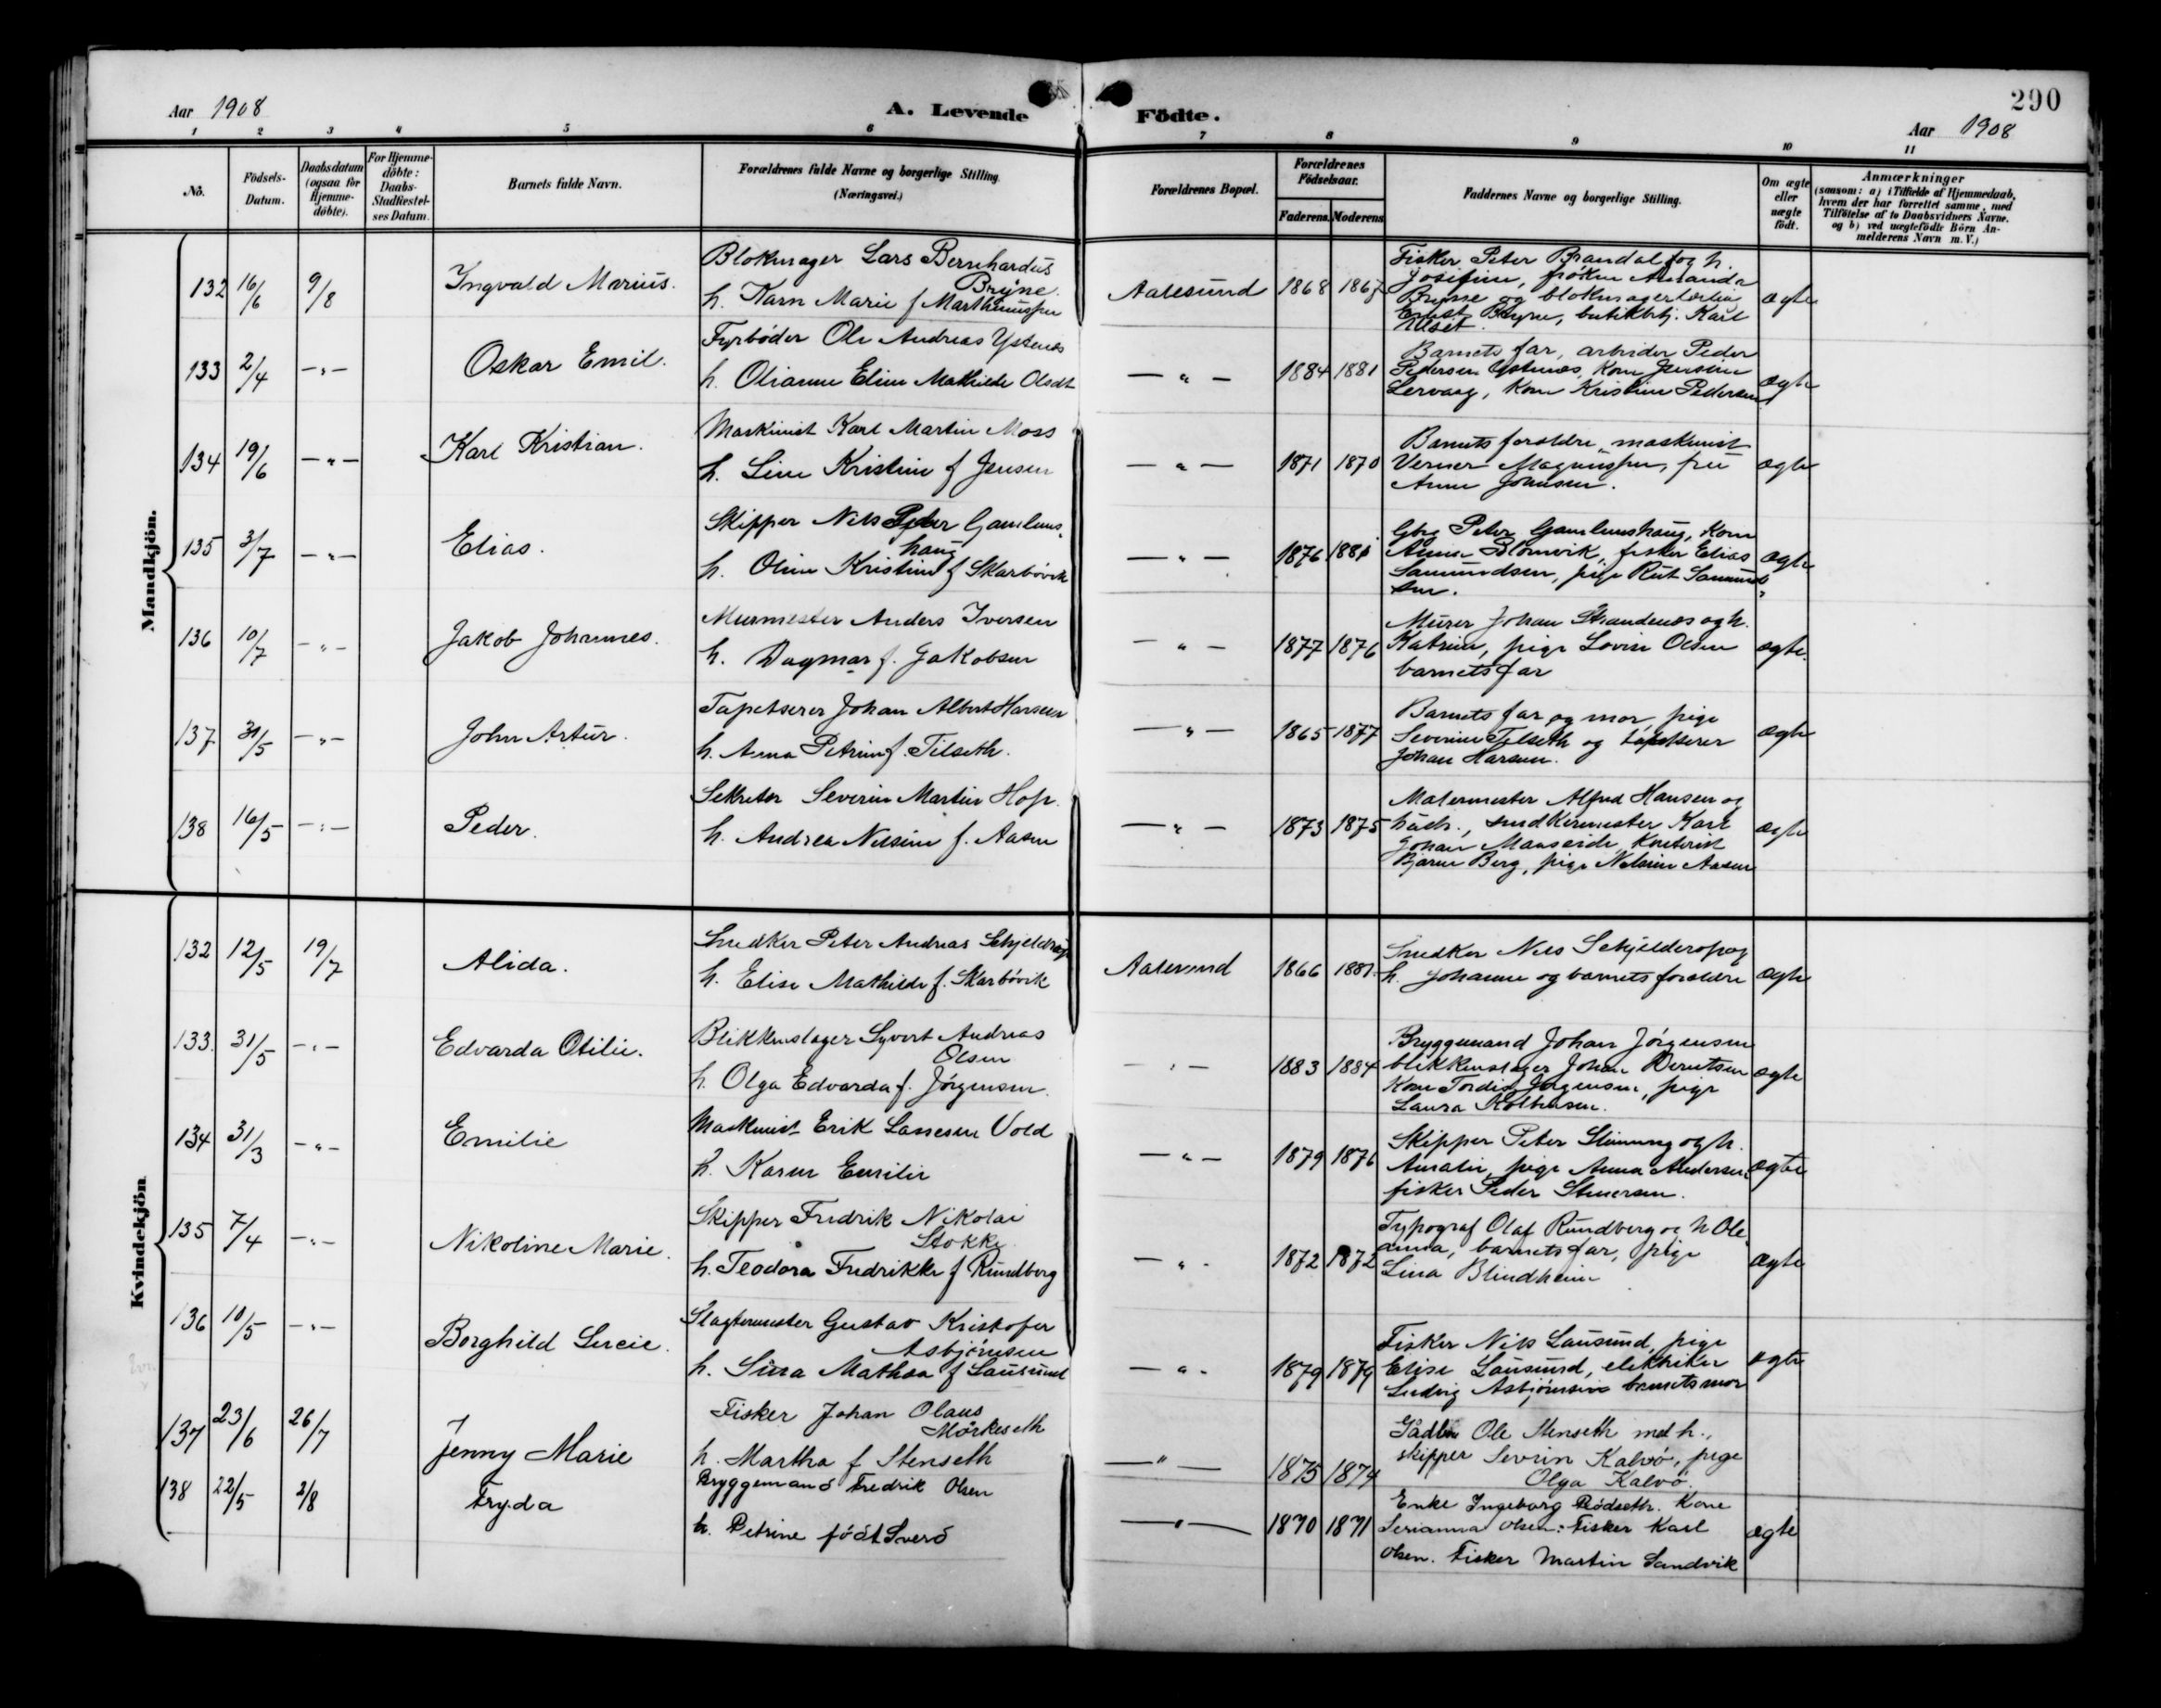 290
Aar 1908
A. Levende Födte.
Aar 1908
1 2 3 4 5 6 7 8 9 10 11
No.
Födsels-Datum.
Daabsdatum (ogsaa for Hjemme-döbte).
For Hjemme-döbte: Daabs-Stadfæstel-ses Datum.
Barnets fulde Navn.
Forældrenes fulde Navne og borgerlige Stilling.
(Næringsvei.)
Forældrenes Bopæl.
Forældrenes Födselsaar.
Faderens. Moderens.
Faddernes Navne og borgerlige Stilling.
Om ægte eller uægte födt.
Anmærkninger
(saasom: a) i Tilfælde af Hjemmedaab,
hvem der har forrettet samme, med
Tilföielse af to Daabsvidners Navne.
og b) ved uægtefödte Börn An-
melderens Navn m. V.)
Mandkjön.
132 16/6 9/8 Ingvald Marius.
Blokmager Lars Bernhardus
Bryne.
h. Karn Marie f Marthinussen
Aalesund 1868
Fisker Peter Brandal og h.
Josefine, frøken Amanda
Bryne og blokmagerlærling
Ernst Bryne, butikbtj. Karl
Ulset.
ægte
133 2/4 —"— Oskar Emil.
Fyrbøder Ole Andreas Ystenes
h. Olianne Eline Mathilde Olsdt
—"— 1884 1881
Barnets far, arbeider Peder
Pedersen Ystenæs, Kone Jensine
Lervaag, Kone Kristine Pedersen
ægte
134 19/6 —"— Karl Kristian.
Maskinist Karl Martin Moss
h. Line Kristine f Jensen
—"— 1871 1870
Barnets forældre, maskinist
Verner Magnussen, frue
Anne Johnsen.
ægte
135 3/7 —"— Elias.
Skipper Nils Peder Gamlems-
haug
h. Oline Kristine f Skarbövik
—"— 1876
Gbrg Peter Gamlemshaug, Kone
Anna Blomvik, fisker Elias
Samundsen, pige Rut Samund-
sen.
ægte
136 10/7 —"— Jakob Johannes.
Murmester Anders Iversen
h. Dagmar f. Jakobsen
—"— 1877 1876
Murer Johan Strandenæs og h.
Katrine, pige Lovise Olsen
barnets far
ægte.
137 31/5 —"— John Artur.
Tapetserer Johan Albert Hansen
h. Anna Petrine f. Tilseth.
—"— 1865 1877
Barnets far og mor, pige
Severine Tilseth og tapetserer
Johan Hansen.
ægte
138 16/5 —"— Peder.
Sekretær Severin Martin Hop.
h. Andrea Nilsine f. Aasen
—"— 1873 1875
Malermester Alfred Hansen og
hustr., snedkermester Karl
Johan Manseide, Kontorist
Bjarne Berg, pige Nilsine Aasen
ægte
Kvindekjön
132 12/5 19/7 Alida.
Snedker Peter Andreas Schjelderup
h. Elise Mathilde f. Skarbövik
Aalesund 1866 1881.
Snedker Nils Schjelderop og
h. Johanne og barnets forældre
ægte
133 31/5 —"— Edvarda Otilie.
Blikkenslager Syvert Andreas
Olsen
h. Olga Edvarda f. Jörgensen.
—"— 1883 1884
Bryggemand Johan Jörgensen
blikkenslager Johan Berntsen
Kone Tordis Jörgensen, pige
Laura Kolbensen.
ægte
134 31/3 —"— Emilie
Maskinist Erik Lassesen Vold
h. Karen Emilie
—"— 1879 1876
Skipper Peter og h.
Amalie, pige Anna Andersen
fisker Peder Stenersen.
ægte
135 7/4 —"— Nikoline Marie.
Skipper Fredrik Nikolai
Stokke
h. Teodora Fredrikke f Rundberg
—"— 1872 1872
Typograf Olaf Rundberg og h Ole
anna, barnets far, pige
Lina Blindheim
ægte
136 10/5 —"— Borghild Lucie.
Slagtermester Gustav Kristofer
Asbjörnsen
h. Sina Mathea f Lausund
—"— 1879 1879
Fisker Nils Lausund, pige
Elise Lausund, elektriker
Ludvig Asbjörnsen barnets mor
ægte
137 23/6 26/7 Jenny Marie
Fisker Johan Olaus
Mörkeseth
h. Martha f Stenseth
—"— 1875 1874
Gådbr. Ole Stenseth med h.,
skipper Severin Kalvö, pige
Olga Kalvö.
138 22/5 2/8 Fryda
Bryggemand Fredrik Olsen
h. Petrine födt Sverd
—"— 1870 1871
Enke Ingeborg Rödseth. Kone
Serianna Olsen: Fisker Karl
Olsen. Fisker Martin Sandvik
ægte